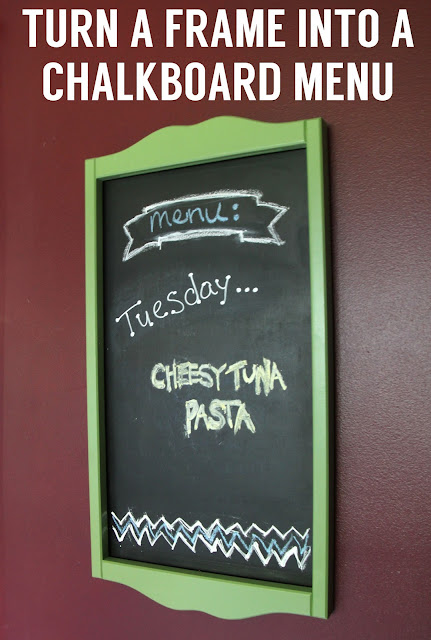 TURN A FRAME INTO A
CHALKBOARD MENU
menu:
Tuesday...
CHEESY TUNA
PASTA